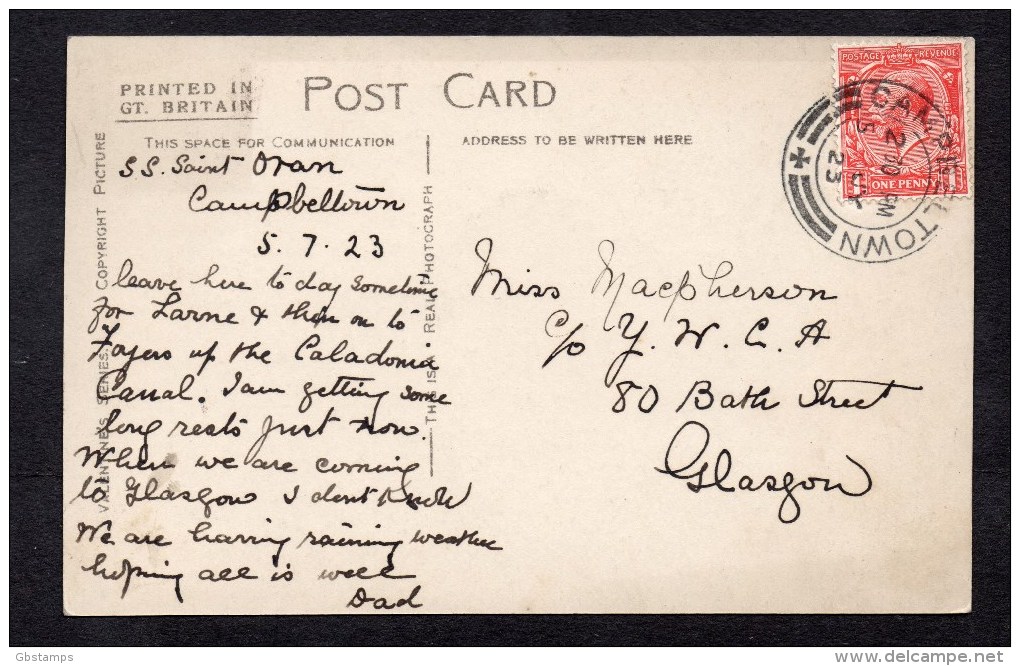 PRINTED IN
GT. BRITAIN
POST CARD
THIS SPACE FOR COMMUNICATION
ADDRESS TO BE WRITTEN HERE
S.S. Saint Oran
Campbeltown
5.7.23
leave here to day sometime
for Larne & then on to
Foyers up the Caladonia
Canal. I am getting some
long rests just now.
When we are coming
to Glasgow I dont know
We are having raining weather
hoping all is well
Dad
VALENTINE'S SERIES. COPYRIGHT PICTURE
THIS IS A REAL PHOTOGRAPH
Miss Macpherson
c/o Y. W. C. A
80 Bath Street
Glasgow
POSTAGE REVENUE
ONE PENNY
CAMPBELTOWN
5 JY
23
Gbstamps
delcampe.net